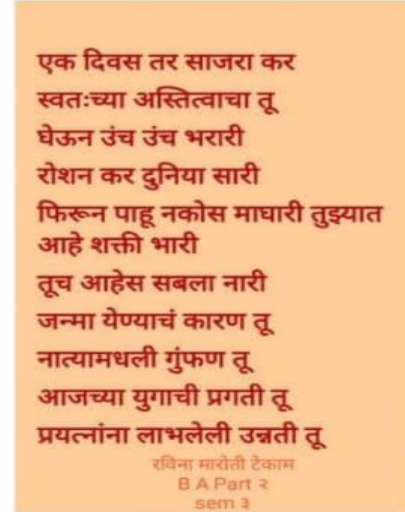 एक दिवस तर साजरा कर
स्वतःच्या अस्तित्वाचा तू
घेऊन उंच उंच भरारी
रोशन कर दुनिया सारी
फिरून पाहू नकोस माघारी तुझ्यात
आहे शक्ती भारी
तूच आहेस सबला नारी
जन्मा येण्याचं कारण तू
नात्यामधली गुंफण तू
आजच्या युगाची प्रगती तू
प्रयत्नांना लाभलेली उन्नती तू
रविना मारोती टेकाम
B A Part २
sem ३